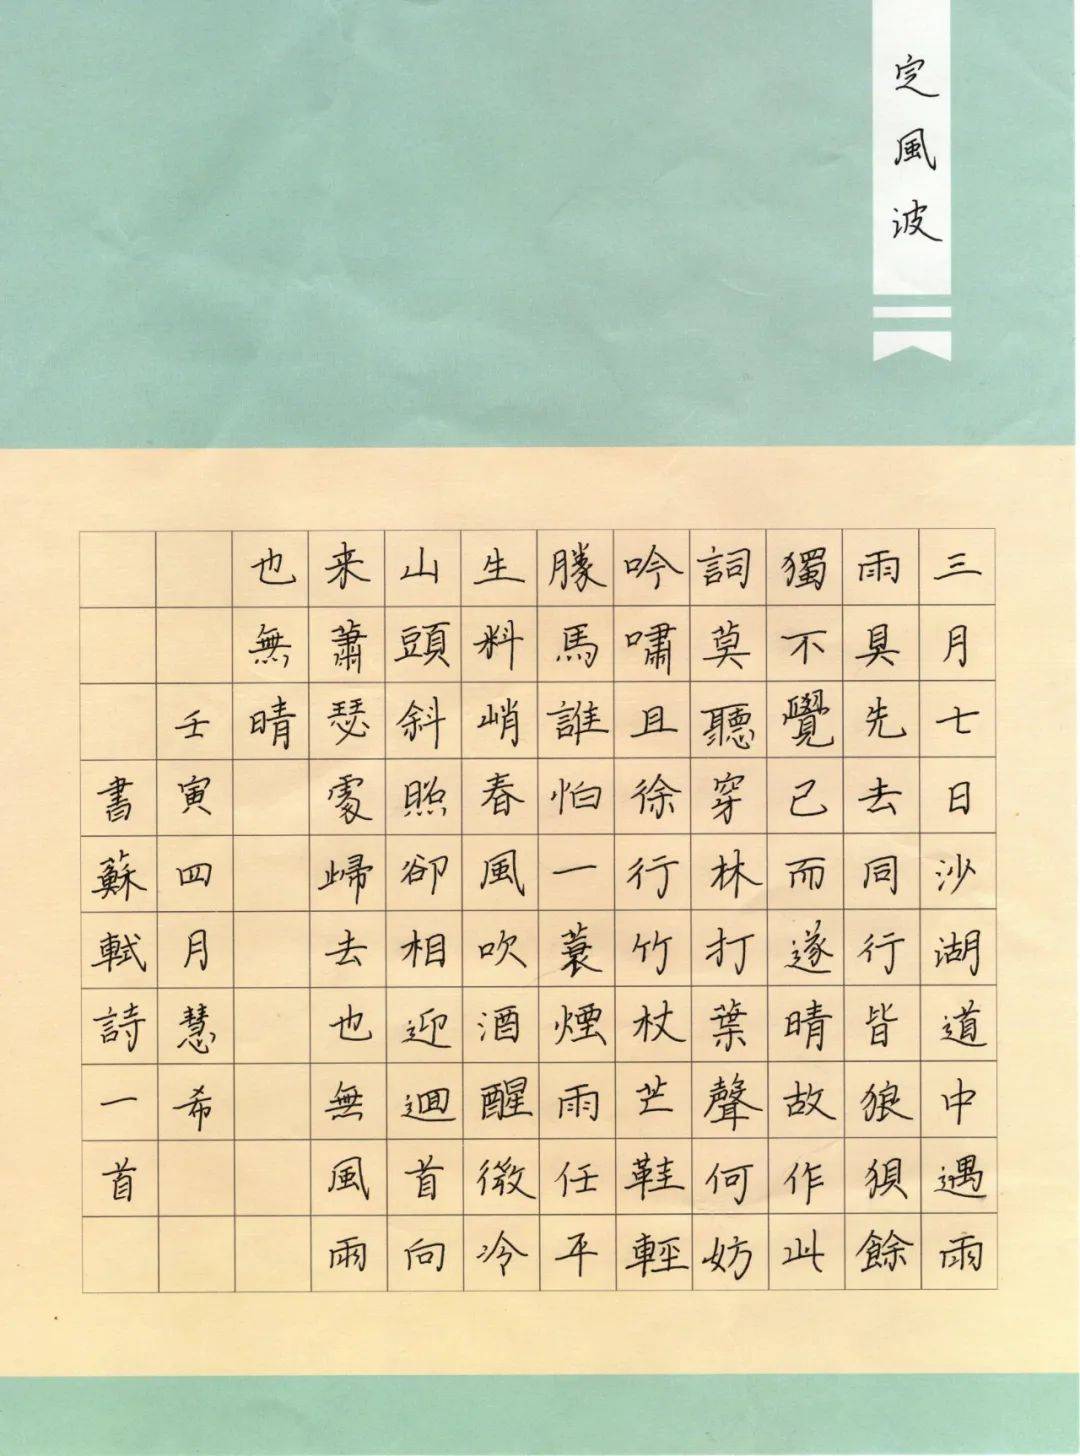 定風波
三月七日沙湖道中遇雨
雨具先去同行皆狼狽餘
獨不覺已而遂晴故作此
詞莫聽穿林打葉聲何妨
吟嘯且徐行竹杖芒鞋輕
勝馬誰怕一蓑煙雨任平
生料峭春風吹酒醒微冷
山頭斜照卻相迎迴首向
来蕭瑟處歸去也無風雨
也無晴
壬寅四月慧希
書蘇軾詩一首